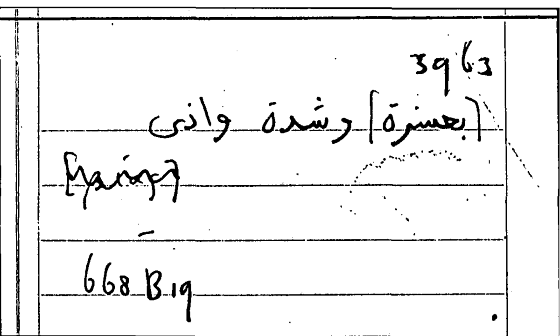 3963
[بعسرة] وشدة واذى
668 B19